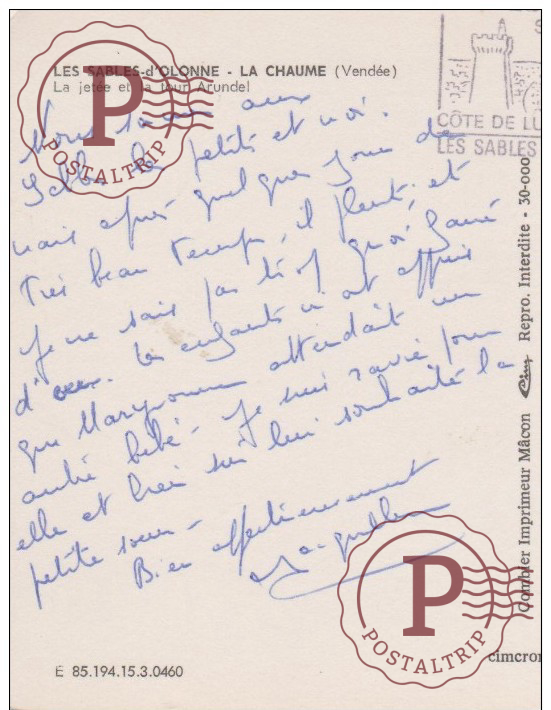 LES SABLES-d'OLONNE - LA CHAUME (Vendée)
La jetée et la tour Arundel
CÔTE DE LU
LES SABLES
POSTALTRIP
Nous aux
Sables les petits et moi.
mais après quelques jours de
très beau temps, il pleut, et
je ne sais pas trop quoi faire
d'eux. Les enfants m'ont appris
que Maryvonne attendait un
autre bébé - Je suis ravie pour
elle et bien sûr lui souhaite la
petite soeur -
Bien affectueusement
Jacqueline
Combier Imprimeur Mâcon Cim Repro. Interdite - 30-000
cimcrom
POSTALTRIP
E 85.194.15.3.0460